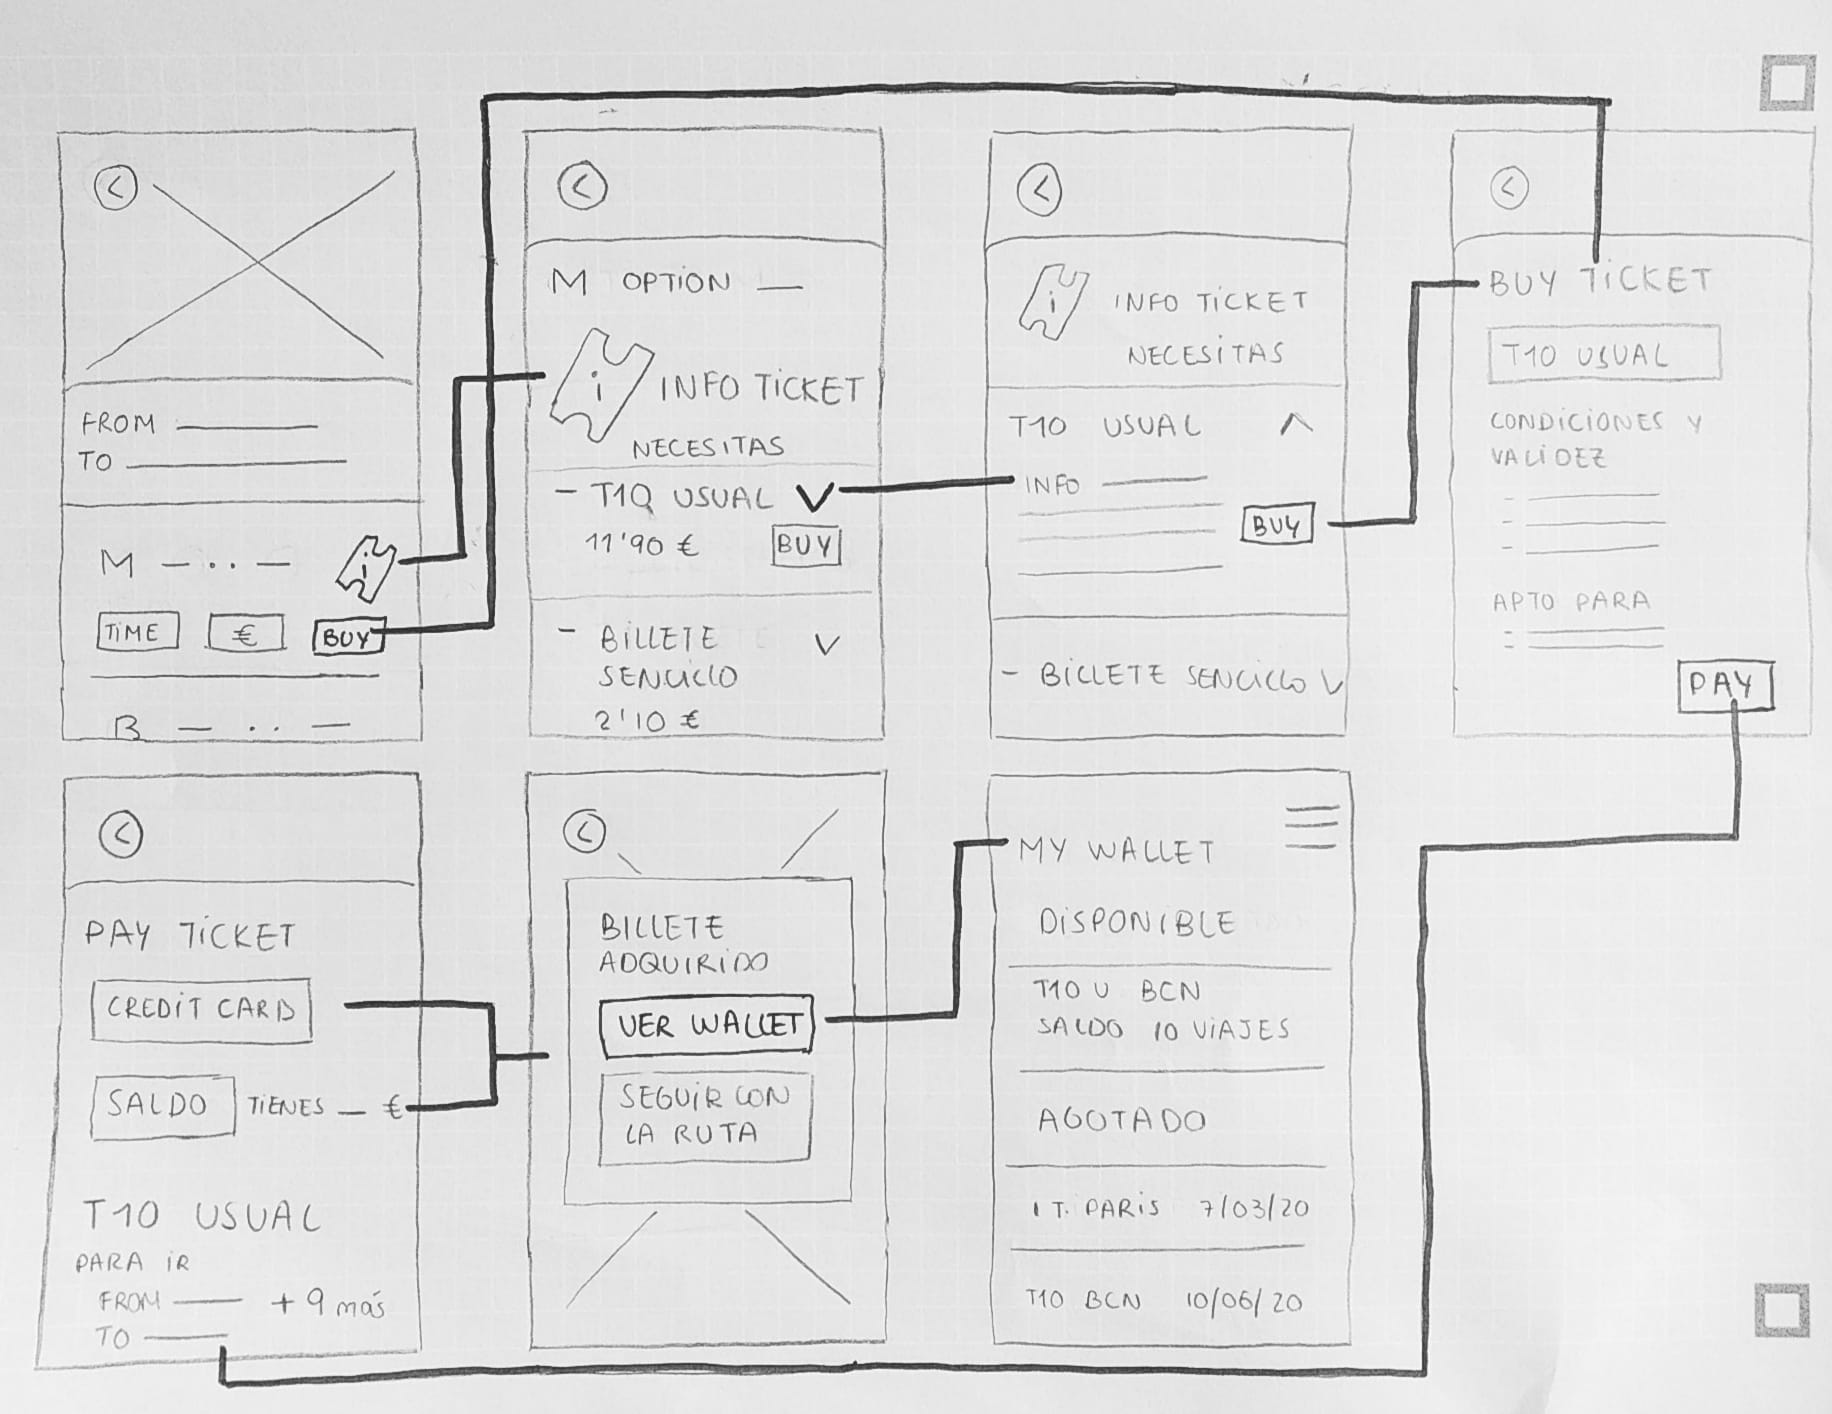 FROM
TO
M
i
TIME
€
BUY
B
M OPTION
i
INFO TICKET
NECESITAS
- T10 USUAL
11'90 €
BUY
- BILLETE
SENCILLO
2'10 €
i
INFO TICKET
NECESITAS
T10 USUAL
INFO
BUY
- BILLETE SENCILLO
BUY TICKET
T10 USUAL
CONDICIONES Y
VALIDEZ
APTO PARA
PAY
PAY TICKET
CREDIT CARD
SALDO TIENES _ €
T10 USUAL
PARA IR
FROM
+ 9 más
TO
BILLETE
ADQUIRIDO
VER WALLET
SEGUIR CON
LA RUTA
MY WALLET
DISPONIBLE
T10 U BCN
SALDO 10 VIAJES
AGOTADO
1 T. PARIS 7/03/20
T10 BCN 10/06/20